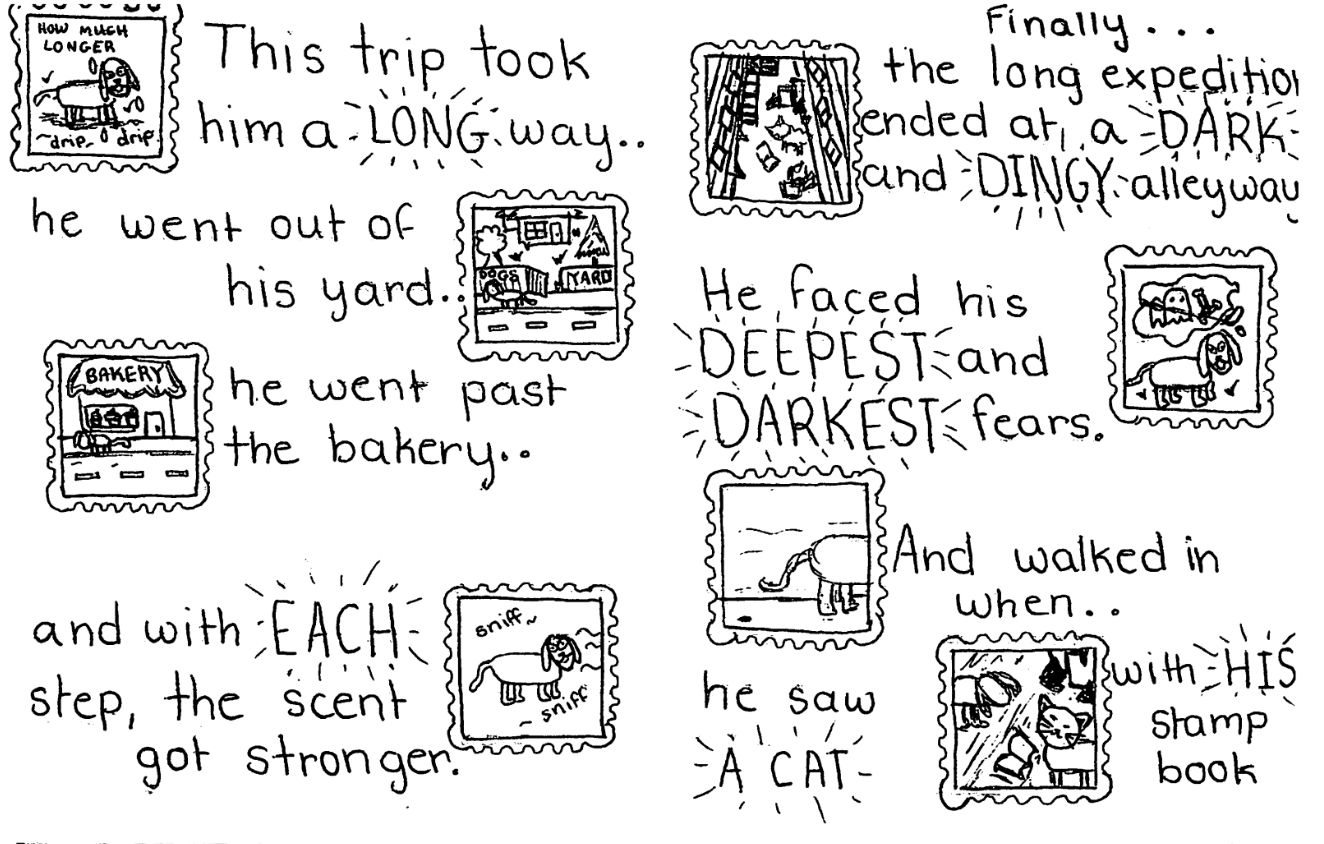 HOW MUCH
LONGER
~drip~ drip
This trip took
him a LONG way..
he went out of
his yard..
DOGS YARD
BAKERY
he went past
the bakery..
and with EACH
step, the scent
got stronger.
sniff~
~sniff
Finally...
the long expedition
ended at, a DARK
and DINGY alleyway
He faced his
DEEPEST and
DARKEST fears.
And walked in
when..
he saw
A CAT
with HIS
stamp
book